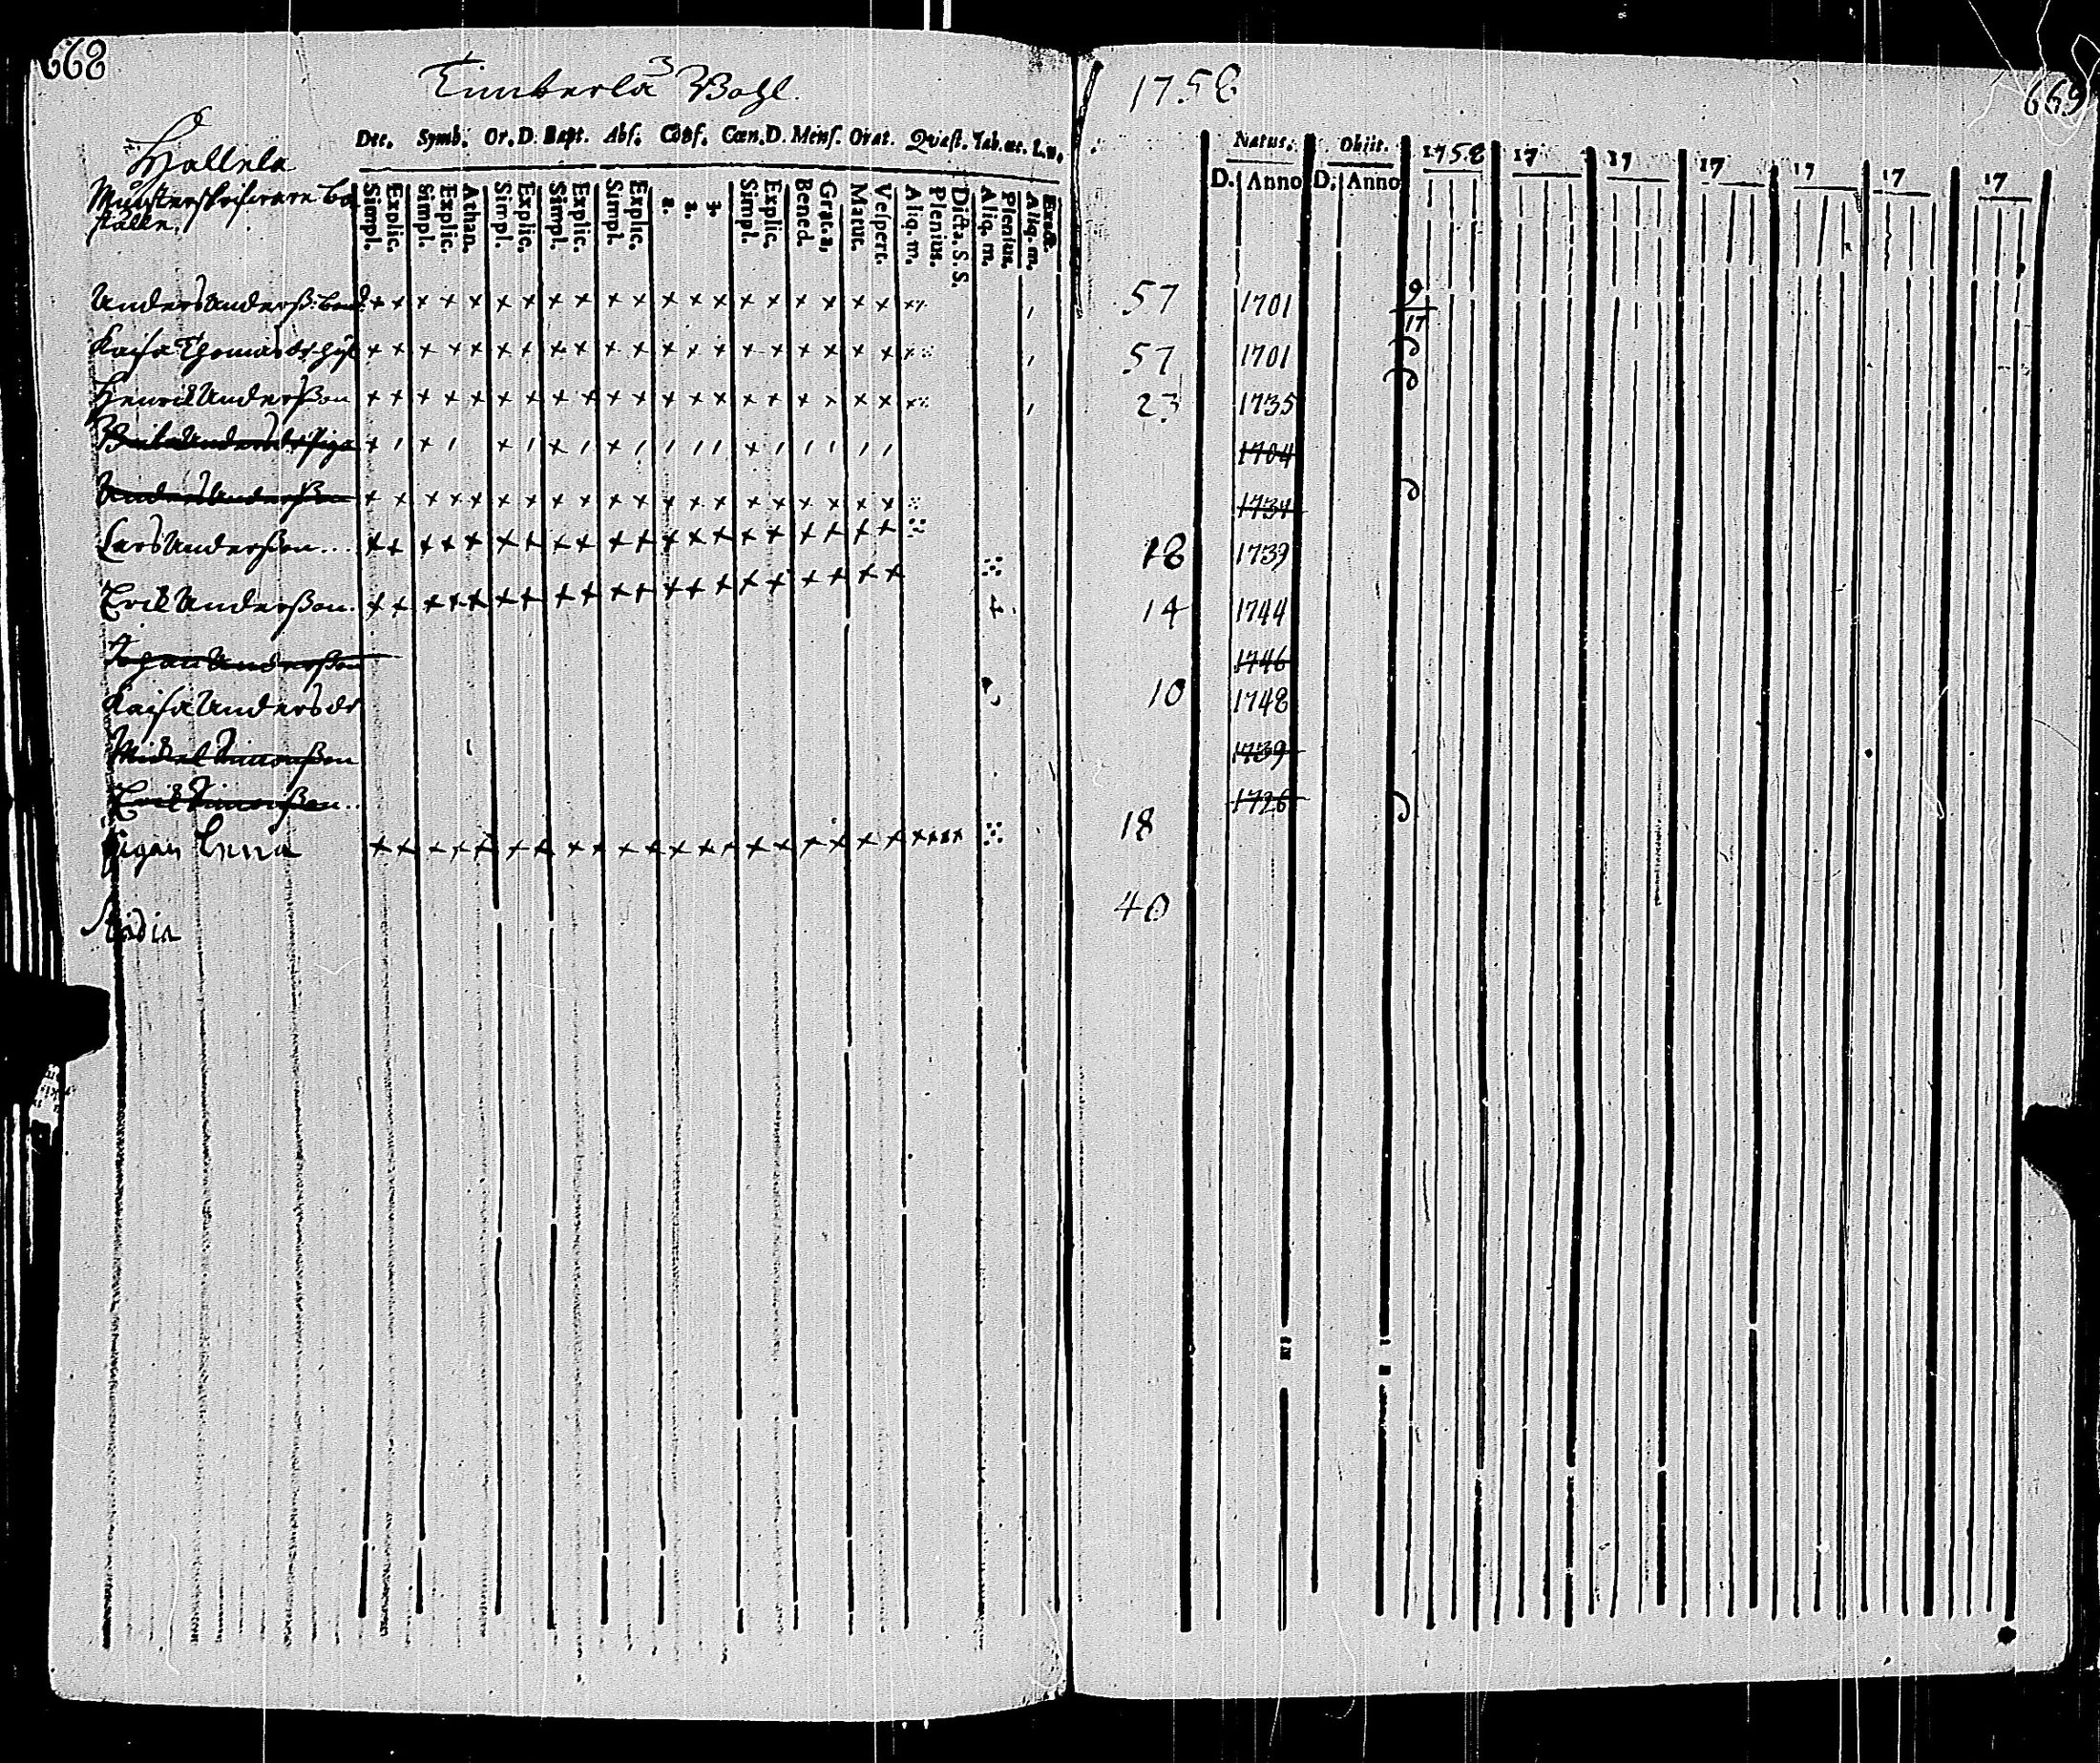 668
Timberla 3 Bohl.
Hallela
Mönsterskrifware bo
ställe.
Dec. Symb. Or. D. Bapt. Abs. Conf. Cœn. D. Mens. Orat. Quæst. Tab. œc. L. u.
Simpl. Explic. Simpl. Explic. Athan. Simpl. Explic. Simpl. Explic. Simpl. Explic. 1. 2. 3. Simpl. Explic. Bened. Grat. a. Matut. Vespert. Aliq. m. Plenius. Dicta S. S. Aliq. m. Plenius. Aliq. m. Exacte.
Anders Anderß:
Kaisa Thomasdr
Henrik Anderßon
Anders Anderßon
Lars Anderßon
Erik Anderßon.
Johan Anderßon
Kaisa Andersdr
Michel Simonßon
Erik Simonßon
pigan
1758 669
Natus. Obiit. 1758 17 17 17 17 17 17
D. Anno D. Anno
57 1701 9
17
57 1701
23 1735
1704
1734
18 1739
14 1744
1746
10 1748
1739
1726
18
40